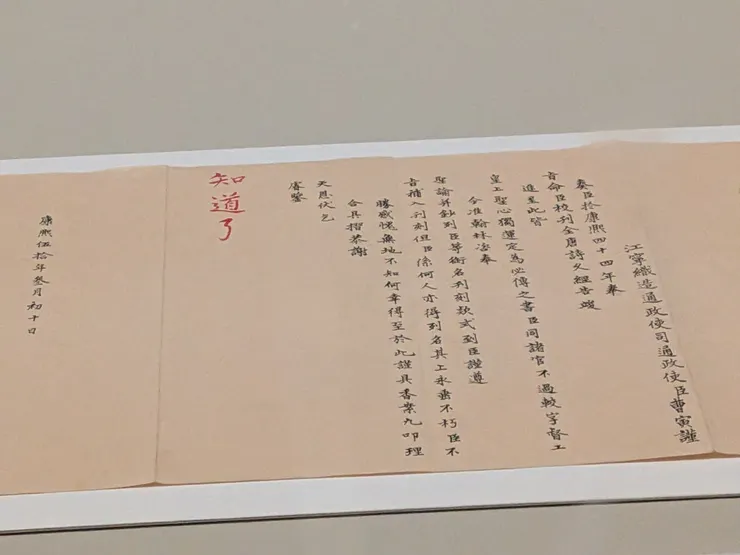 江寧織造通政使司通政使臣曹寅謹
奏臣於康熙四十四年奉
旨命臣校刊全唐詩久經告竣
進呈此皆
皇上聖心獨運定為必傳之書臣同諸官不過較字督工
今准翰林咨奉
聖諭并鈔到臣等銜名列刻款式到臣謹遵
旨補入刊刻但臣係何人亦得列名其上永垂不朽臣不
勝感愧無地不知何幸得至於此謹具香案九叩理
合具摺恭謝
天恩伏乞
睿鑒
知道了
康熙伍拾年叁月初十日